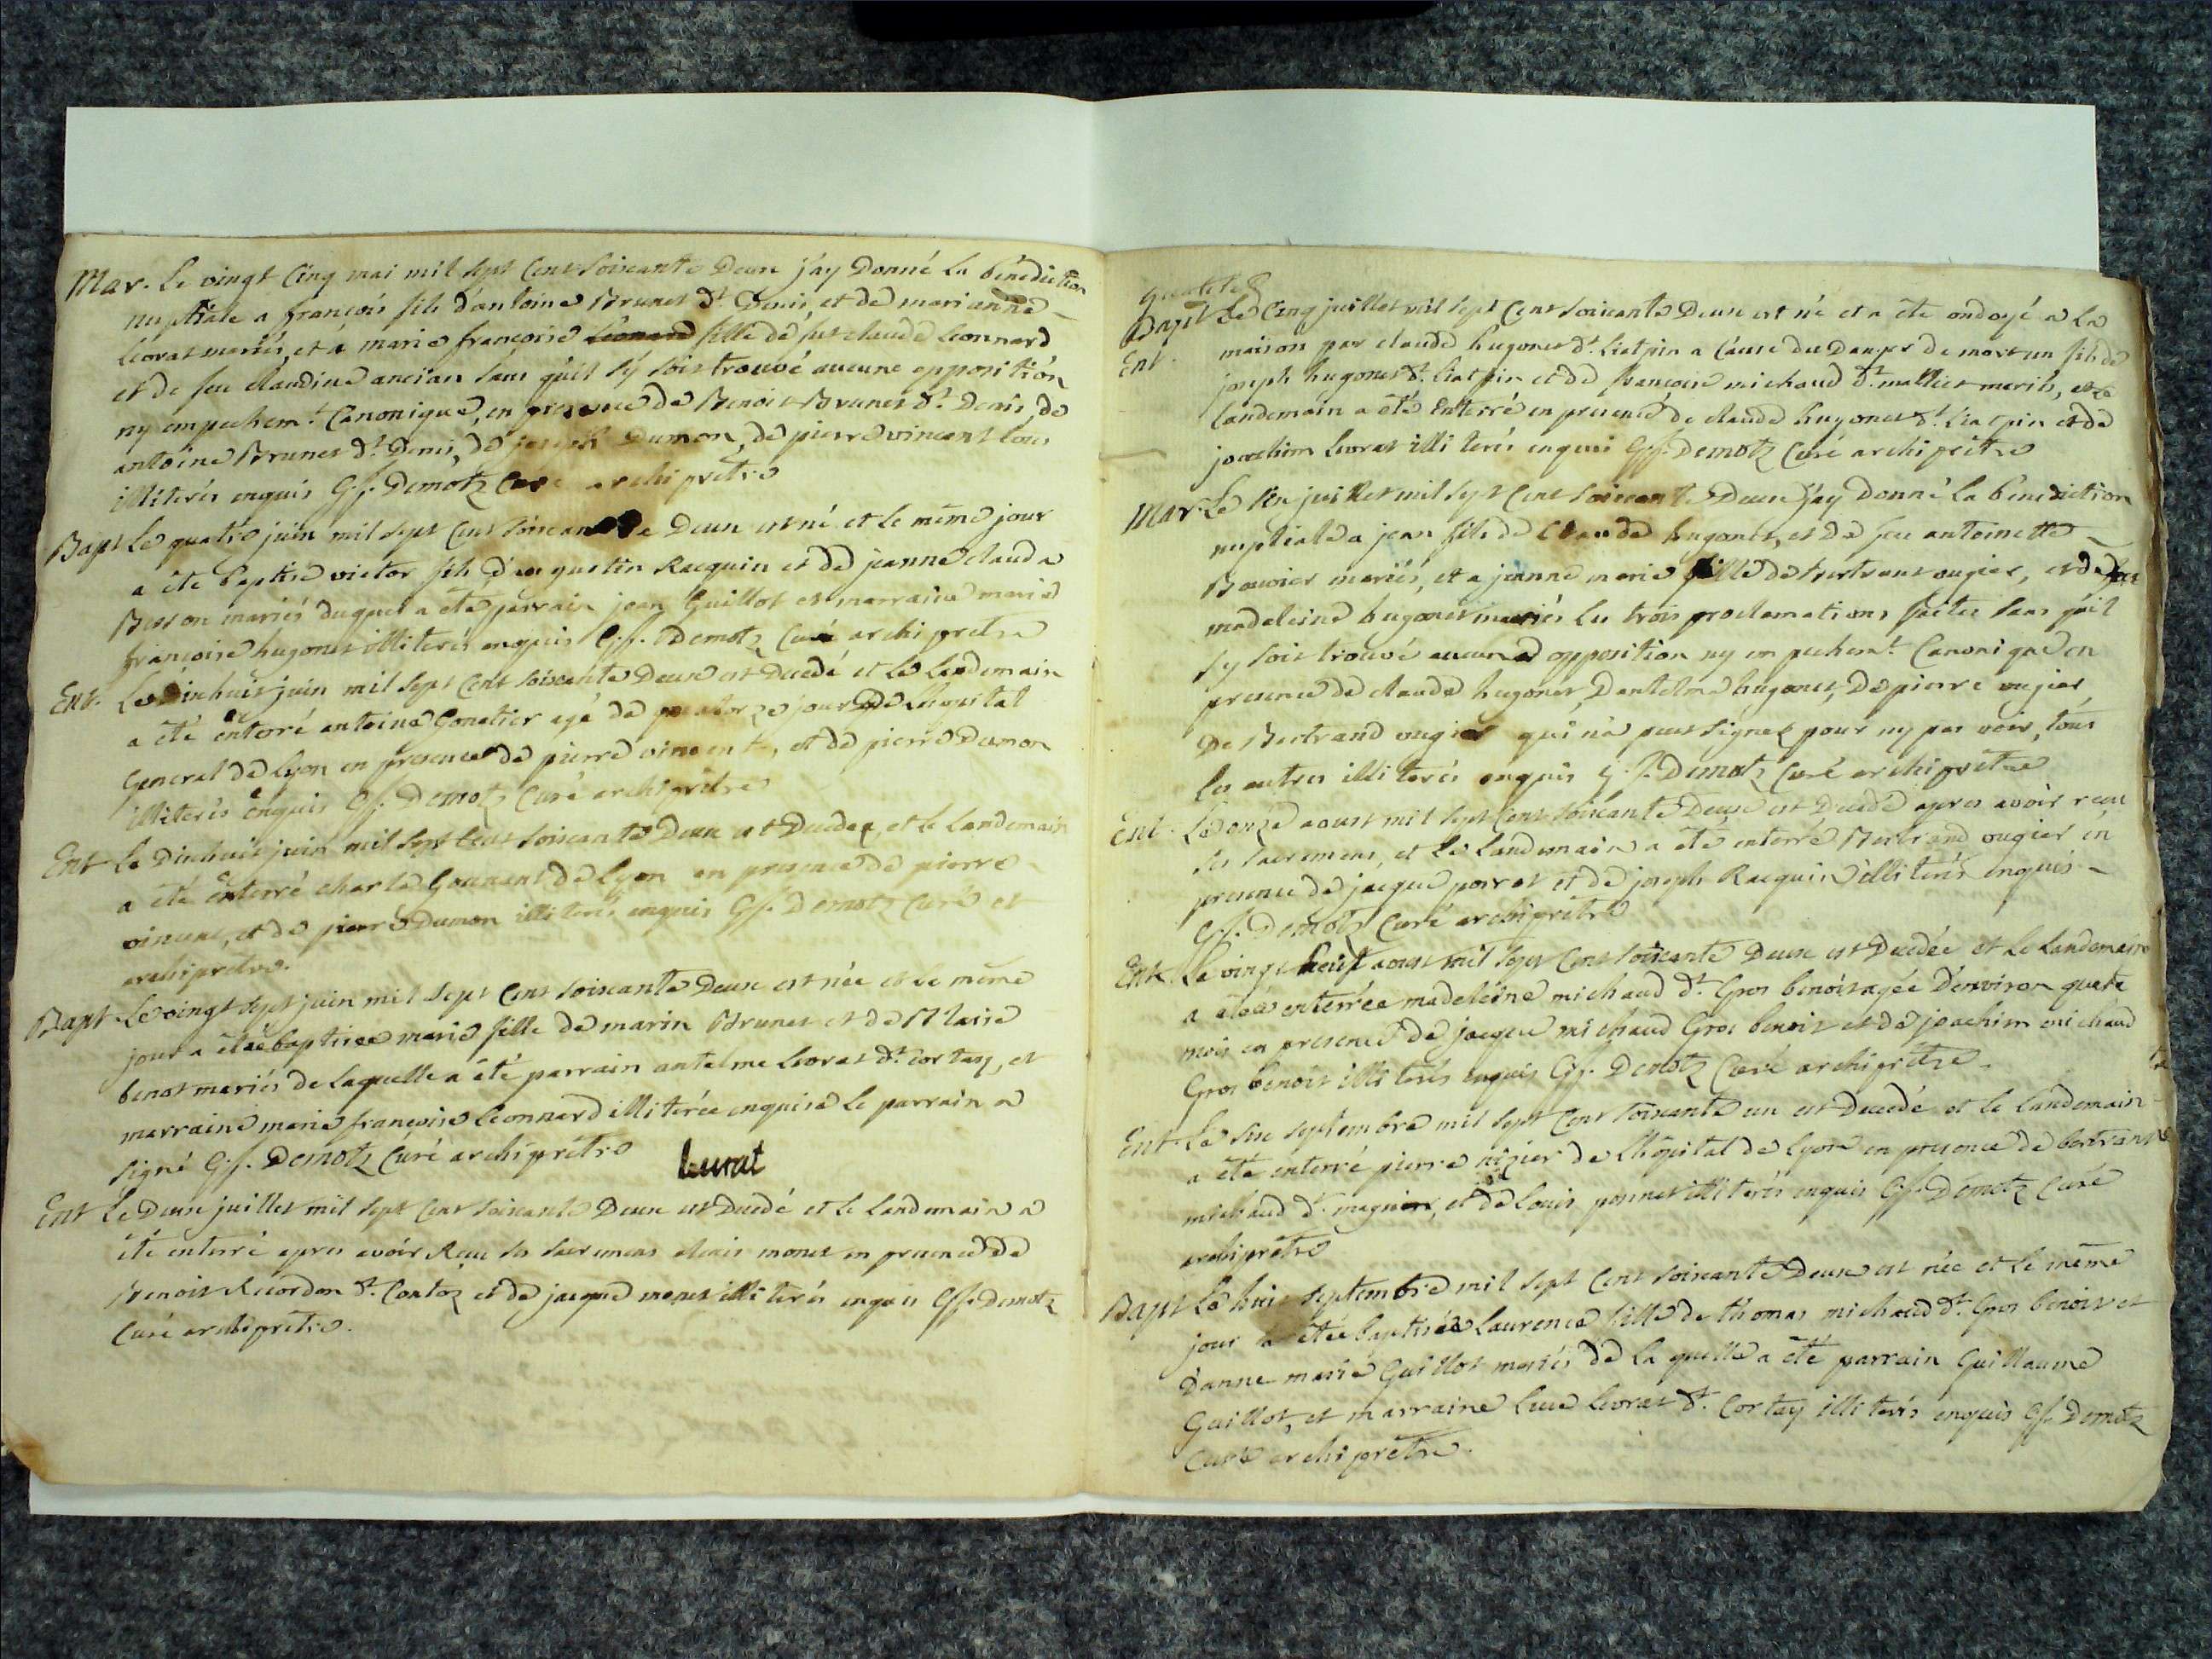 Mar. Le vingt Cinq mai mil sept Cent soixante Deux j'ay Donné la bénédiction
nuptiale a françois fils d'antoine Brunet dt. Denis, et de marianne
Levrat mariés, et a marie françoise Léonard fille de fut claude Leonnard
et de feu claudine ancian sans qu'il s'y soit trouvé aucune opposition
ny empechemt. Canonique, en presence de Benoit Brunet dt. Denis, de
antoine Brunet dt. Denis, de joseph Dumon, de pierre vincent tous
illiterés enquis G.f. Demotz Curé archiprêtre
Bapt Le quatre juin mil sept Cent soixante Deux est né et le même jour
a été baptisé victor fils d'augustin Racquin et de jeanne clauda
Besson mariés duquel a été parrain jean Guillot et marraine marie
françoise hugonet illiterés enquis G.f. Demotz Curé archiprêtre
Ent. Le Dixhuit juin mil sept Cent soixante Deux est Decedé et le Landemain
a été enterré antoine Gonatier agé de quatorze jours de Lhopital
General de Lyon en presence de pierre vincent, et de pierre Dumon
illiterés enquis G.f. Demotz Curé archiprêtre
Ent Le Dixhuit juin mil sept Cent soixante Deux est Decedez, et le Landemain
a été enterré charle Gounant de Lyon en presence de pierre
vincent, et de pierre Dumon illiterés enquis G.f. Demotz Curé et
archiprêtre.
Bapt Le vingt sept juin mil sept Cent soixante Deux est née et le même
jour a étée baptisée marie fille de marin Brunet et de Claire
benot mariés de Laquelle a été parrain antelme Levrat dt. Cortay, et
marraine marie françoise Leonnard illiterée enquise le parrain a
signé G.f. Demotz Curé archiprêtre Levrat
Ent Le Deux juillet mil sept Cent soixante Deux est Decedé et le Landemain a
été enterré apres avoir Reçu ses sacremens monet en presence de
Benoit Recordon dt. et de jacque monet illiterés enquis G.f. Demotz
Curé archiprêtre.
Bapt Le Cinq juillet mil sept Cent soixante Deux est né et a été ondoyé a la
Ent. maison par claude hugonet dt. Liatpin a Cause du Danger de mort un fils de
joseph hugonet dt. Liatpin et de françoise michaud dt. mariés, et le
Landemain a été Enterré en presence de claude hugonet dt. Liatpin et de
joachim Levrat illiterés enquis G.f. Demotz Curé archiprêtre
Mar. Le Six juillet mil sept Cent soixante Deux j'ay Donné la bénédiction
nuptiale a jean fils de Claude hugonet, et de feu antoinette
Bouvier mariés, et a jeanne marie fille de bertrant ougier, et de feu
madeleine hugonet mariés les trois proclamations faites sans qu'il
s'y soit trouvé aucune opposition ny empechemt. Canonique en
presence de claude hugonet, Dantelme hugonet, De pierre ougier
De Bertrand ougier qui n'a peut signer pour ny pas voir, tous
les autres illiterés enquis G.f. Demotz Curé archiprêtre
Ent. Le onze aoust mil sept Cent soixante Deux est Decedé apres avoir reçu
ses sacremens, et Le Landemain a été enterré Bertrand ougier en
presence de jacque poirat et de joseph Racquin illiterés enquis
G.f. Demotz Curé archiprêtre
Ent. Le vingt neuf aoust mil sept Cent soixante Deux est Decedée et Le Landemain
a étée enterrée madeleine michaud dt. Gros benoit agée D'environ quatre
mois en presence de jacque michaud Gros benoit et de joachim michaud
Gros benoit illiterés enquis G.f. Demotz Curé archiprêtre.
Ent. Le Six septembre mil sept Cent soixante un est Decedé et le Landemain
a été enterré pierre nizier de Lhôpital de Lyon en presence de bertrant
michaud dt. magnin, et de Louis ponnet illiterés enquis G.f. Demotz Curé
archiprêtre
Bapt Le huit septembre mil sept Cent soixante Deux est née et le même
jour a étée baptisée Laurence fille de thomas michaud dt. Gros benoit et
d'anne marie Guillot mariés de la quelle a été parrain Guillaume
Guillot, et marraine Luce Levrat dt. Cortay illiterés enquis G.f. Demotz
Curé archiprêtre.